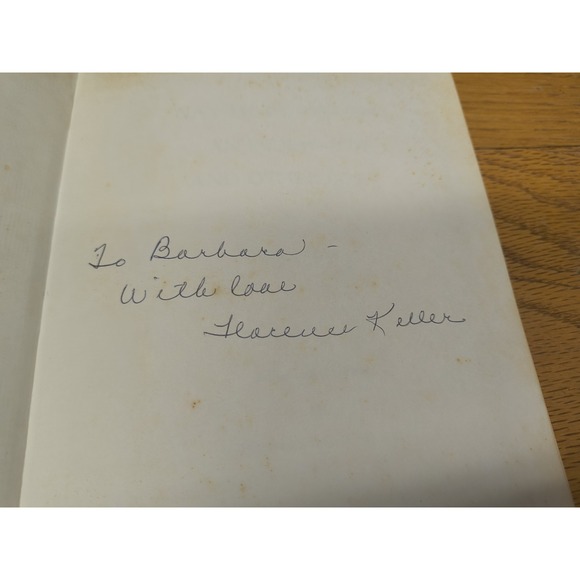 To Barbara -
With love
Florence Keller